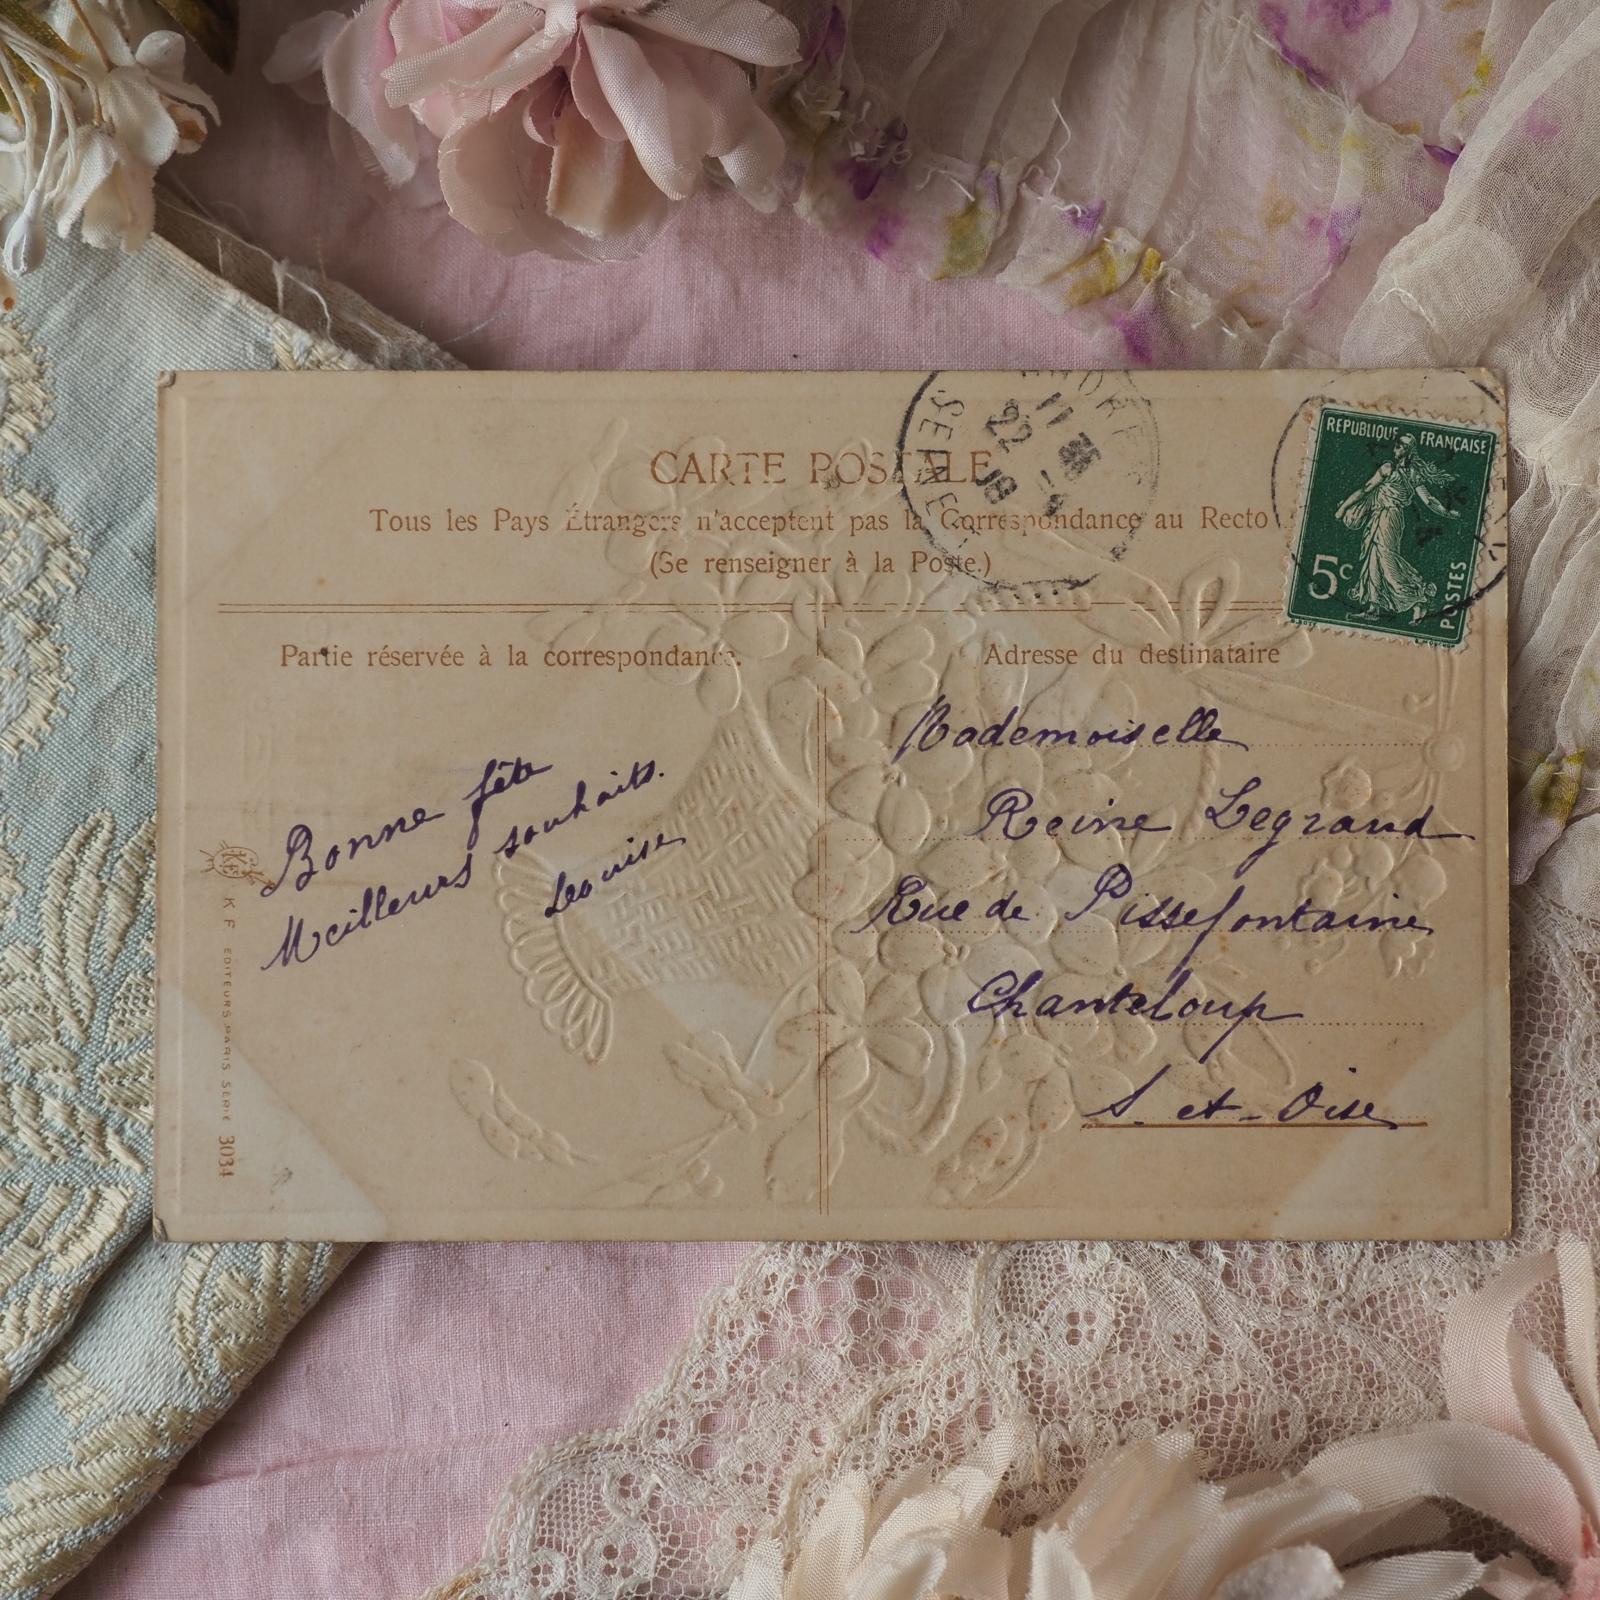 CARTE POSTALE
Tous les Pays Étrangers n'acceptent pas la Correspondance au Recto
(Se renseigner à la Poste.)
SEINE
22
11
REPUBLIQUE FRANÇAISE
5c
POSTES
Partie réservée à la correspondance.
Bonne fête
Meilleurs souhaits.
Louise
Adresse du destinataire
Mademoiselle
Reine Legrand
Rue de Pissefontaine
Chanteloup
S. et-Oise
K F EDITEURS PARIS SERIE 3034